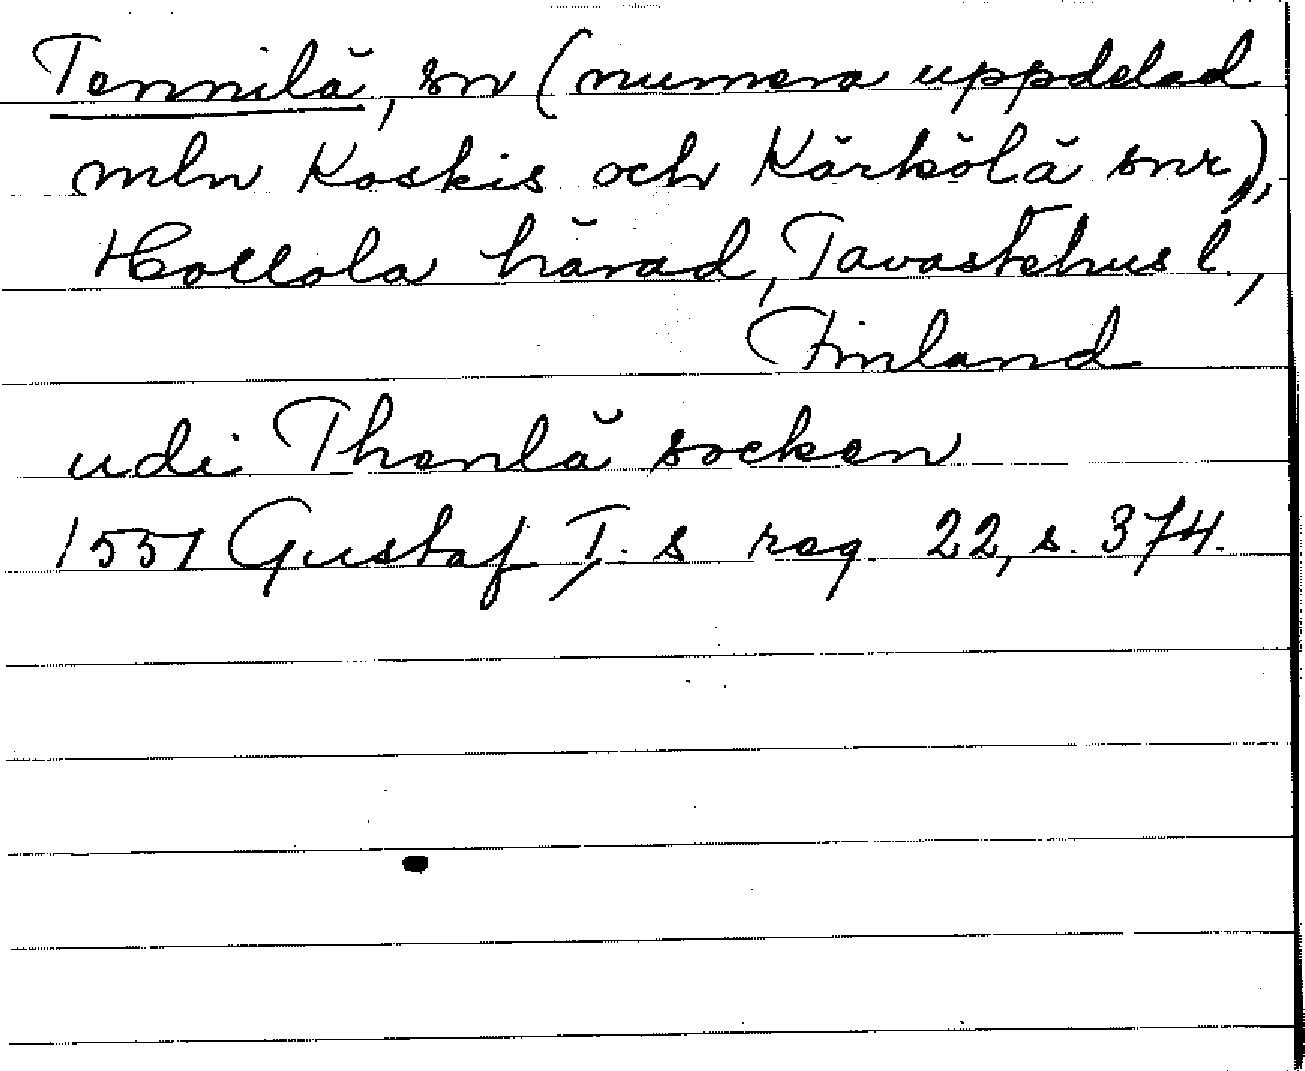 Tennilä, sn (numera uppdelad
mln Koskis och Kärkölä snr),
Hollola härad, Tavastehus l.,
Finland
udi Thenlä socken
1551 Gustaf I:s reg. 22, s. 374.